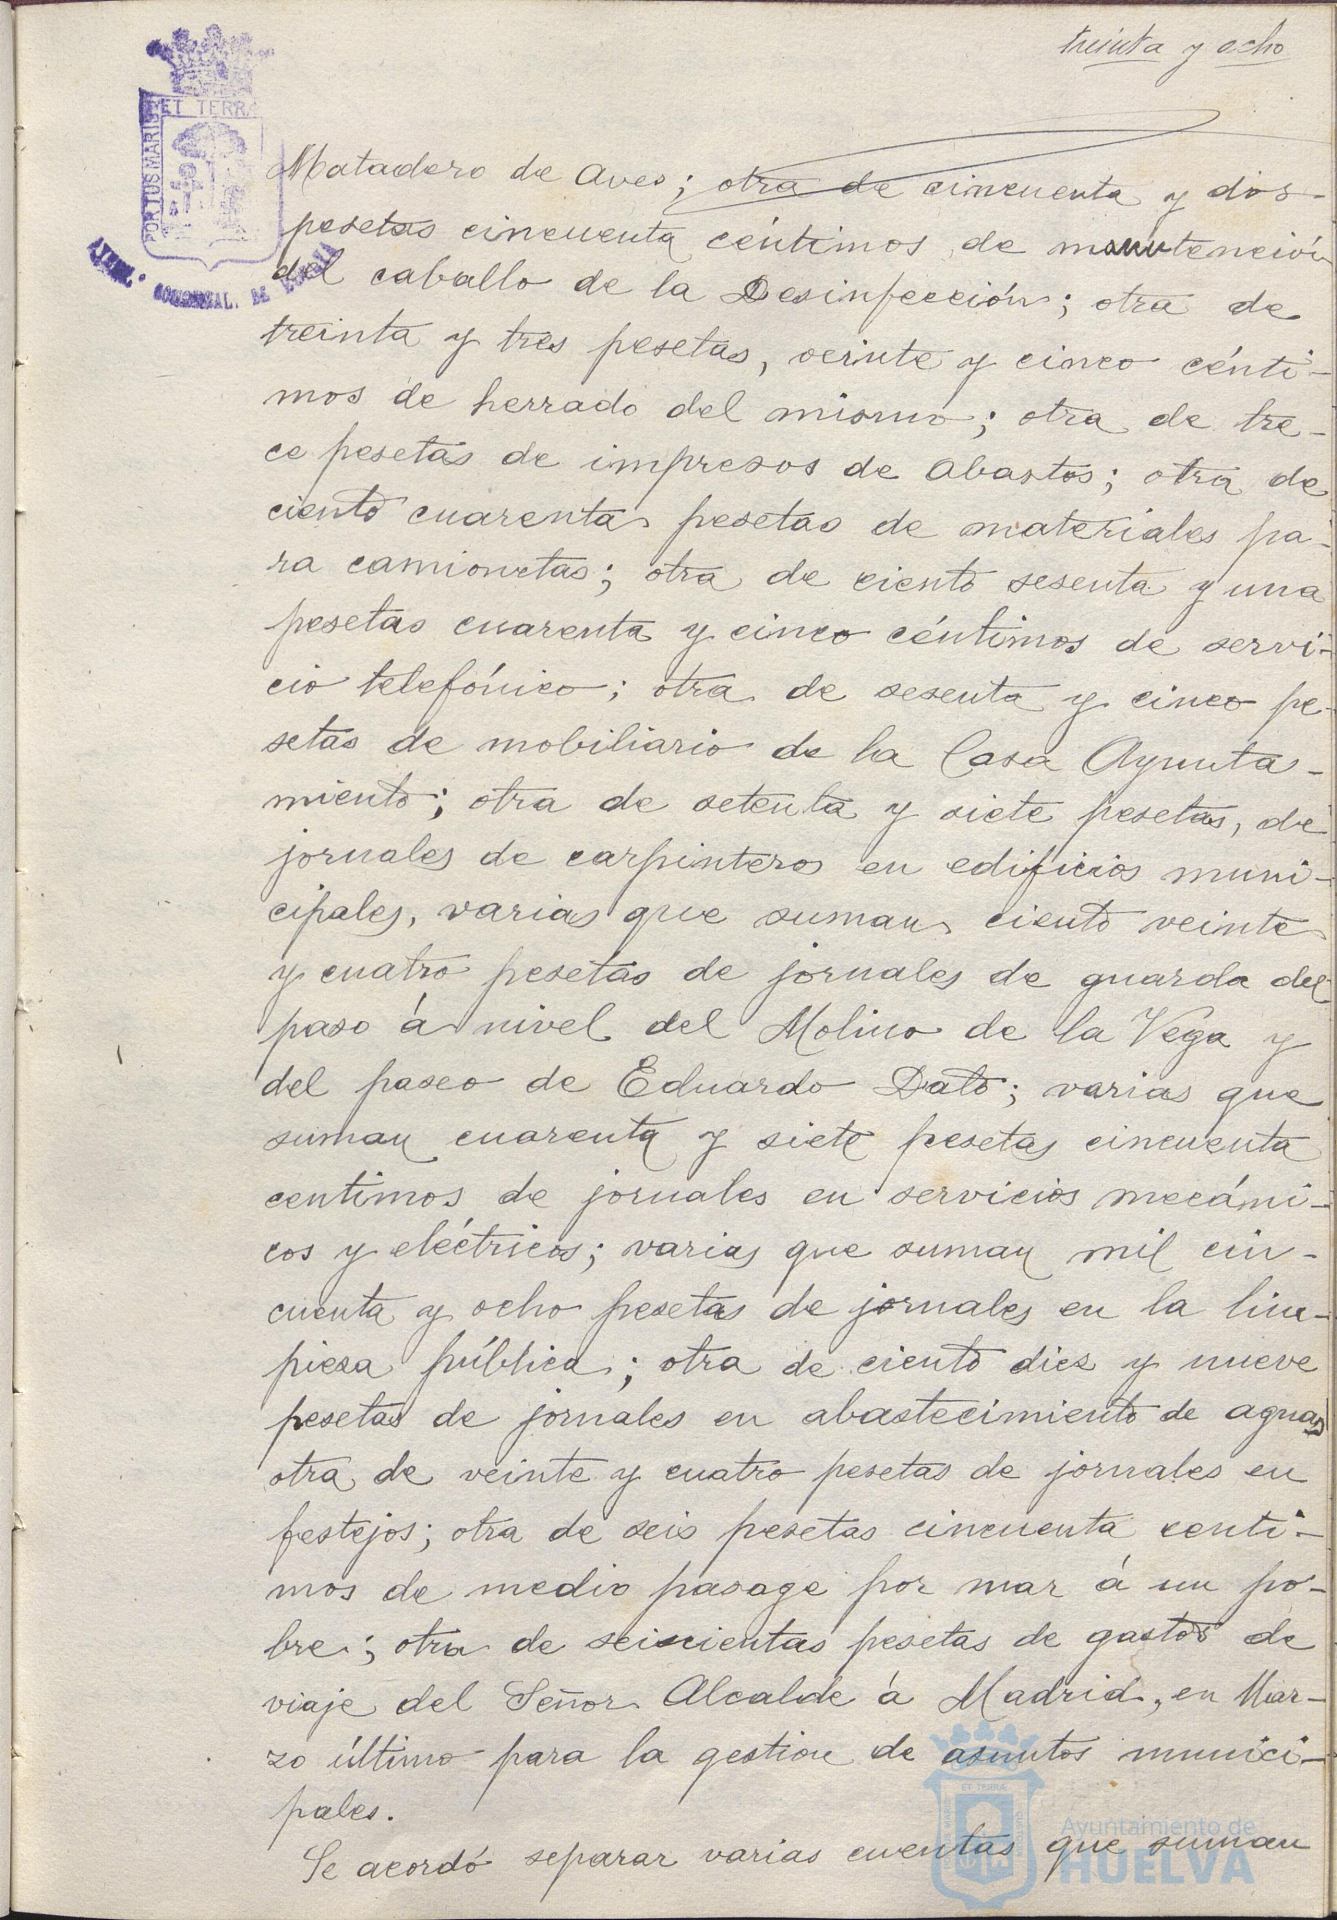 treinta y ocho
PORTUS MARIS ET TERRÆ
Matadero de Aves; otra de cincuenta y dos
pesetas cincuenta céntimos de manutención
del caballo de la Desinfección; otra de
treinta y tres pesetas, veinte y cinco cénti-
mos de herrado del mismo; otra de tre-
ce pesetas de impresos de Abastos; otra de
ciento cuarenta pesetas de materiales pa-
ra camionetas; otra de ciento sesenta y una
pesetas cuarenta y cinco céntimos de servi-
cio telefónico; otra de sesenta y cinco pe-
setas de mobiliario de la Casa Ayunta-
miento; otra de setenta y siete pesetas, de
jornales de carpinteros en edificios muni-
cipales, varias que suman ciento veinte
y cuatro pesetas de jornales de guarda del
paso á nivel del Molino de la Vega y
del paseo de Eduardo Dato; varias que
suman cuarenta y siete pesetas cincuenta
centimos de jornales en servicios mecáni-
cos y eléctricos; varias que suman mil cin-
cuenta y ocho pesetas de jornales en la lim-
pieza pública; otra de ciento diez y nueve
pesetas de jornales en abastecimiento de aguas
otra de veinte y cuatro pesetas de jornales en
festejos; otra de seis pesetas cincuenta centi-
mos de medio pasage por mar á un po-
bre; otra de seiscientas pesetas de gastos de
viaje del Señor Alcalde á Madrid, en Mar-
zo último para la gestion de asuntos munici-
pales.
Se acordó separar varias cuentas que suman
Ayuntamiento de
HUELVA